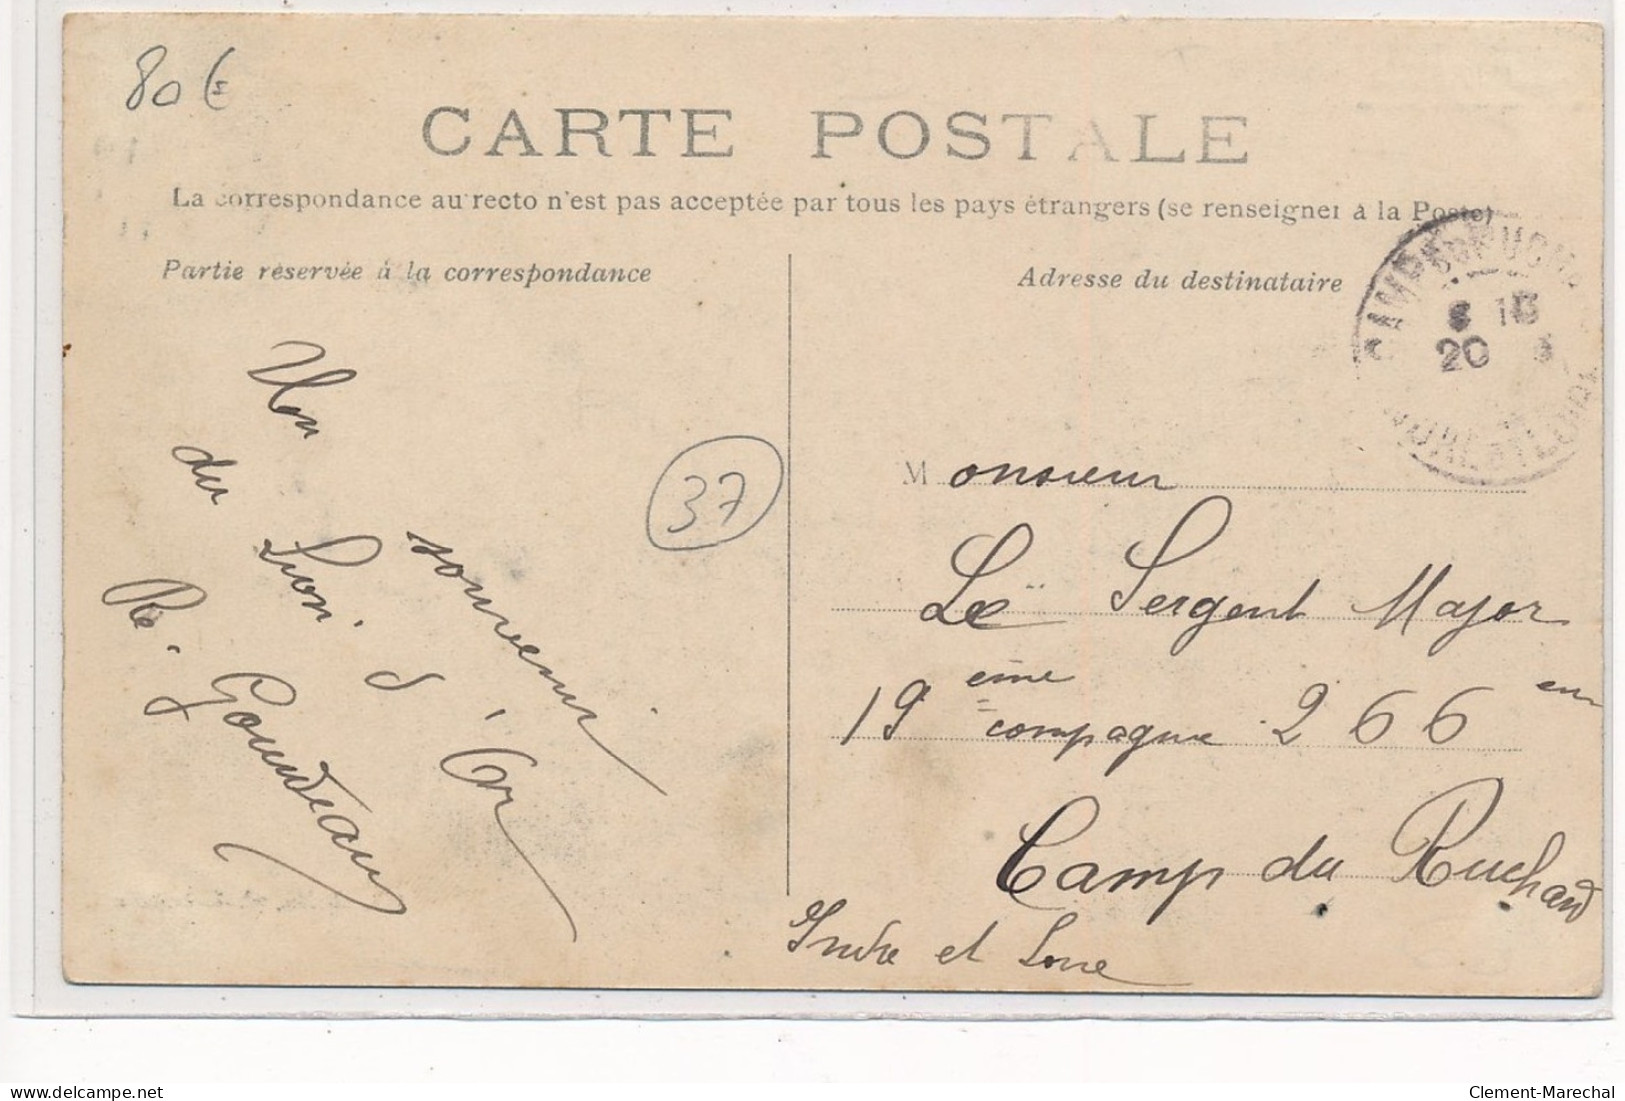 80 €
CARTE POSTALE
La correspondance au recto n'est pas acceptée par tous les pays étrangers (se renseigner à la Poste)
Partie réservée à la correspondance
Adresse du destinataire
8 15
20
souvenir
du Lion d'Or
R. Goundeau
37
Monsieur
Le Sergent Major
19 eme compagnie 266 em
Camp du Ruchard
Indre et Loire
delcampe.net
Clement-Marechal